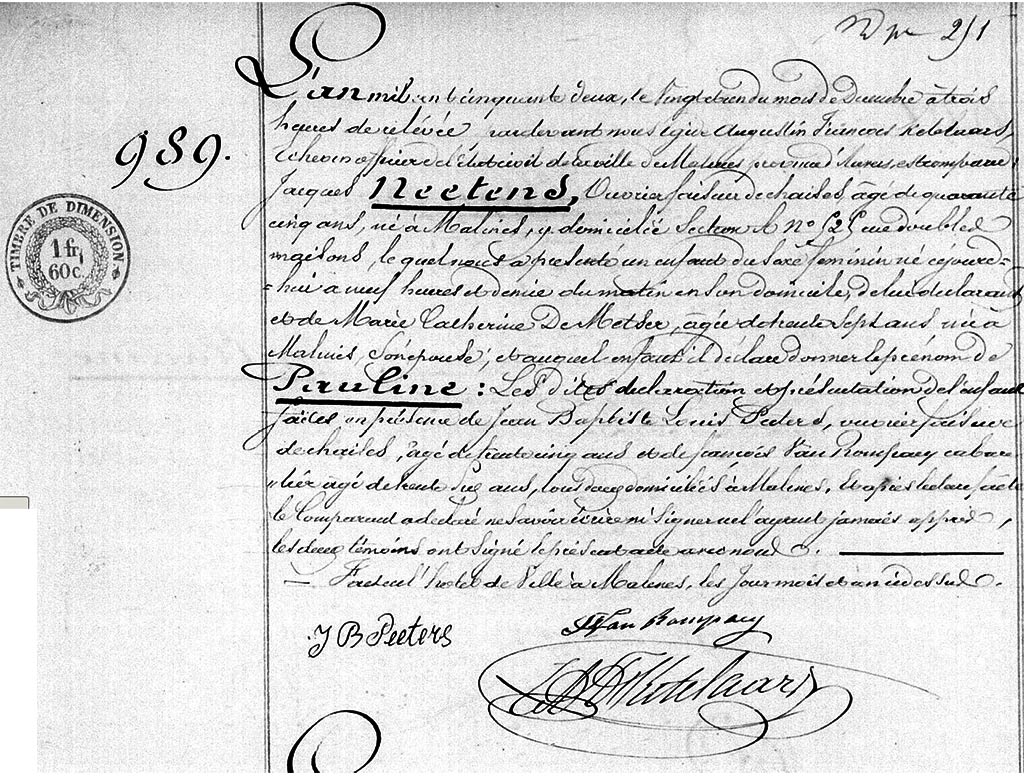 L'an mil huit cent cinquante deux, le vingt et un du mois de Decembre à trois
heures de relévée pardevant nous Égide Augustin François Ketelaars,
Echevin officier de l'état civil de la ville de Malines province d'Anvers, est comparu:
989.
Jacques Neetens, Ouvrier faiseur de chaises, âgé de quarante
cinq ans, né à Malines, y domicilié Section A n° 525 rue doubles
maisons, le quel nous a présenté un enfant du sexe feminin né cejourd=
=hui à neuf heures et demie du matin en son domicile, de lui declarant
et de Marie Catherine De Metser, agée de trente sept ans née à
Malines, son épouse; et auquel enfant il déclare donner le prénom de
Pauline: Les dites declaration et présentation de l'enfant
faites en présence de Jean Baptiste Louis Peeters, ouvrier faiseur
de chaises, agé de trente cinq ans et de françois Van Rompaey cabare
tier agé de trente six ans, tous deux domiciliés à Malines. Et après lecture faite
le Comparant a declaré ne savoir écrire ni signer ne l'ayant jamais appris,
les deux témoins ont signé le présent acte avec nous.
Fait en l'hotel de Ville à Malines, les jour mois et an ci dessus.
TIMBRE DE DIMENSION
1 fr.
60 c.
J B Peeters
F Van Rompaey
Ketelaars